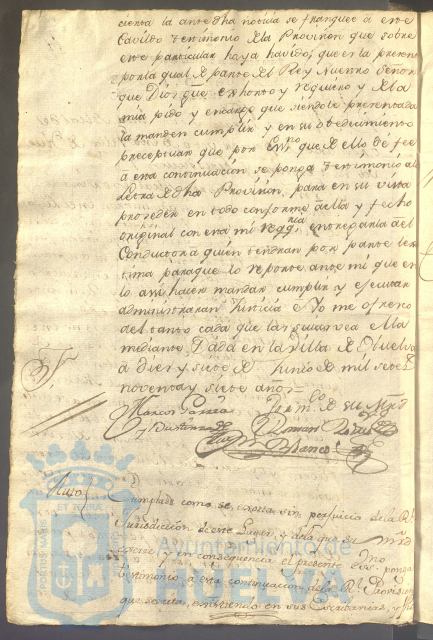 cierta la ante dha noticia se franquee á este
Cavildo testimonio de la Provision que sobre
este particular haya havido, que es la presente
por la qual de parte del Rey Nuestro Señor
que Dios gue exhorto y requiero y de la
mia pido y encargo que siendole presentada
la manden cumplir y en su obedecimiento
preceptuar que por Essno que de ello dé fee
á esta continuacion se ponga testimonio á la
Letra de dha Provision, para en su vista
proveder en todo conforme a ella y fecho
original con esta mi reqqria entregarla al
Conductor á quien tendran por parte lex
tima para que lo reporte ante mi que en
lo assi hacer mandar cumplir y executar
administrarán Justicia é Yo me ofrezco
del tanto cada que las suias vea ella
mediante. Dada en la Villa de Huelva
á diez y siete de Junio de mil setez
noventa y siete años =
Marcos Garcia
Por mdo de su Mrd
Blanco
Auto
Cumplase como se expresa sin perjuicio de la Rl
Jurisdiccion de este Lugar, y de la que su mrd
exerce, y en consequencia el presente Sno ponga
testimonio á esta continuacion de la Rl Provision
que se cita, existiendo en sus Escribanias, y
Ayuntamiento de
HUELVA